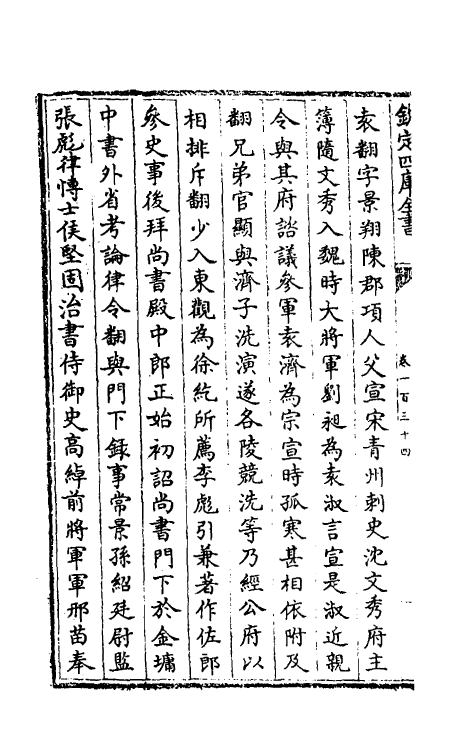 欽定四庫全書
卷一百三十四
袁翻字景翔陳郡項人父宣宋青州刺史沈文秀府主
簿隨文秀入魏時大將軍劉昶為袁淑言宣是淑近親
令與其府諮議參軍袁濟為宗宣時孤寒甚相依附及
翻兄弟官顯與濟子洗演遂各陵競洗等乃經公府以
相排斥翻少入東觀為徐紇所薦李彪引兼著作佐郎
參史事後拜尚書殿中郎正始初詔尚書門下於金墉
中書外省考論律令翻與門下錄事常景孫紹廷尉監
張彪律博士侯堅固治書侍御史高綽前將軍軍邢苗奉